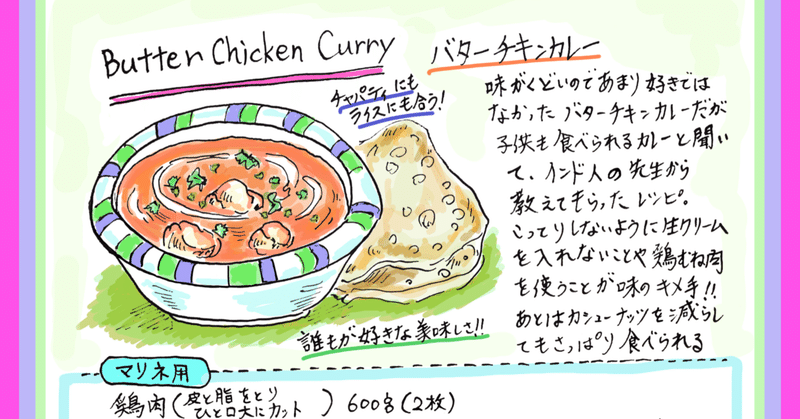 Butter Chicken Curry
バターチキンカレー
チャパティにも
ライスにも合う!
味がくどいのであまり好きでは
なかったバターチキンカレーだが
子供も食べられるカレーと聞い
て、インド人の先生から
教えてもらったレシピ。
こってりしないように生クリーム
を入れないことや鶏むね肉
を使うことが味のキメ手!!
あとはカシューナッツを減らし
てもさっぱり食べられる
誰もが好きな美味しさ!!
マリネ用
鶏肉(皮と脂をとり
ひと口大にカット)600g(2枚)